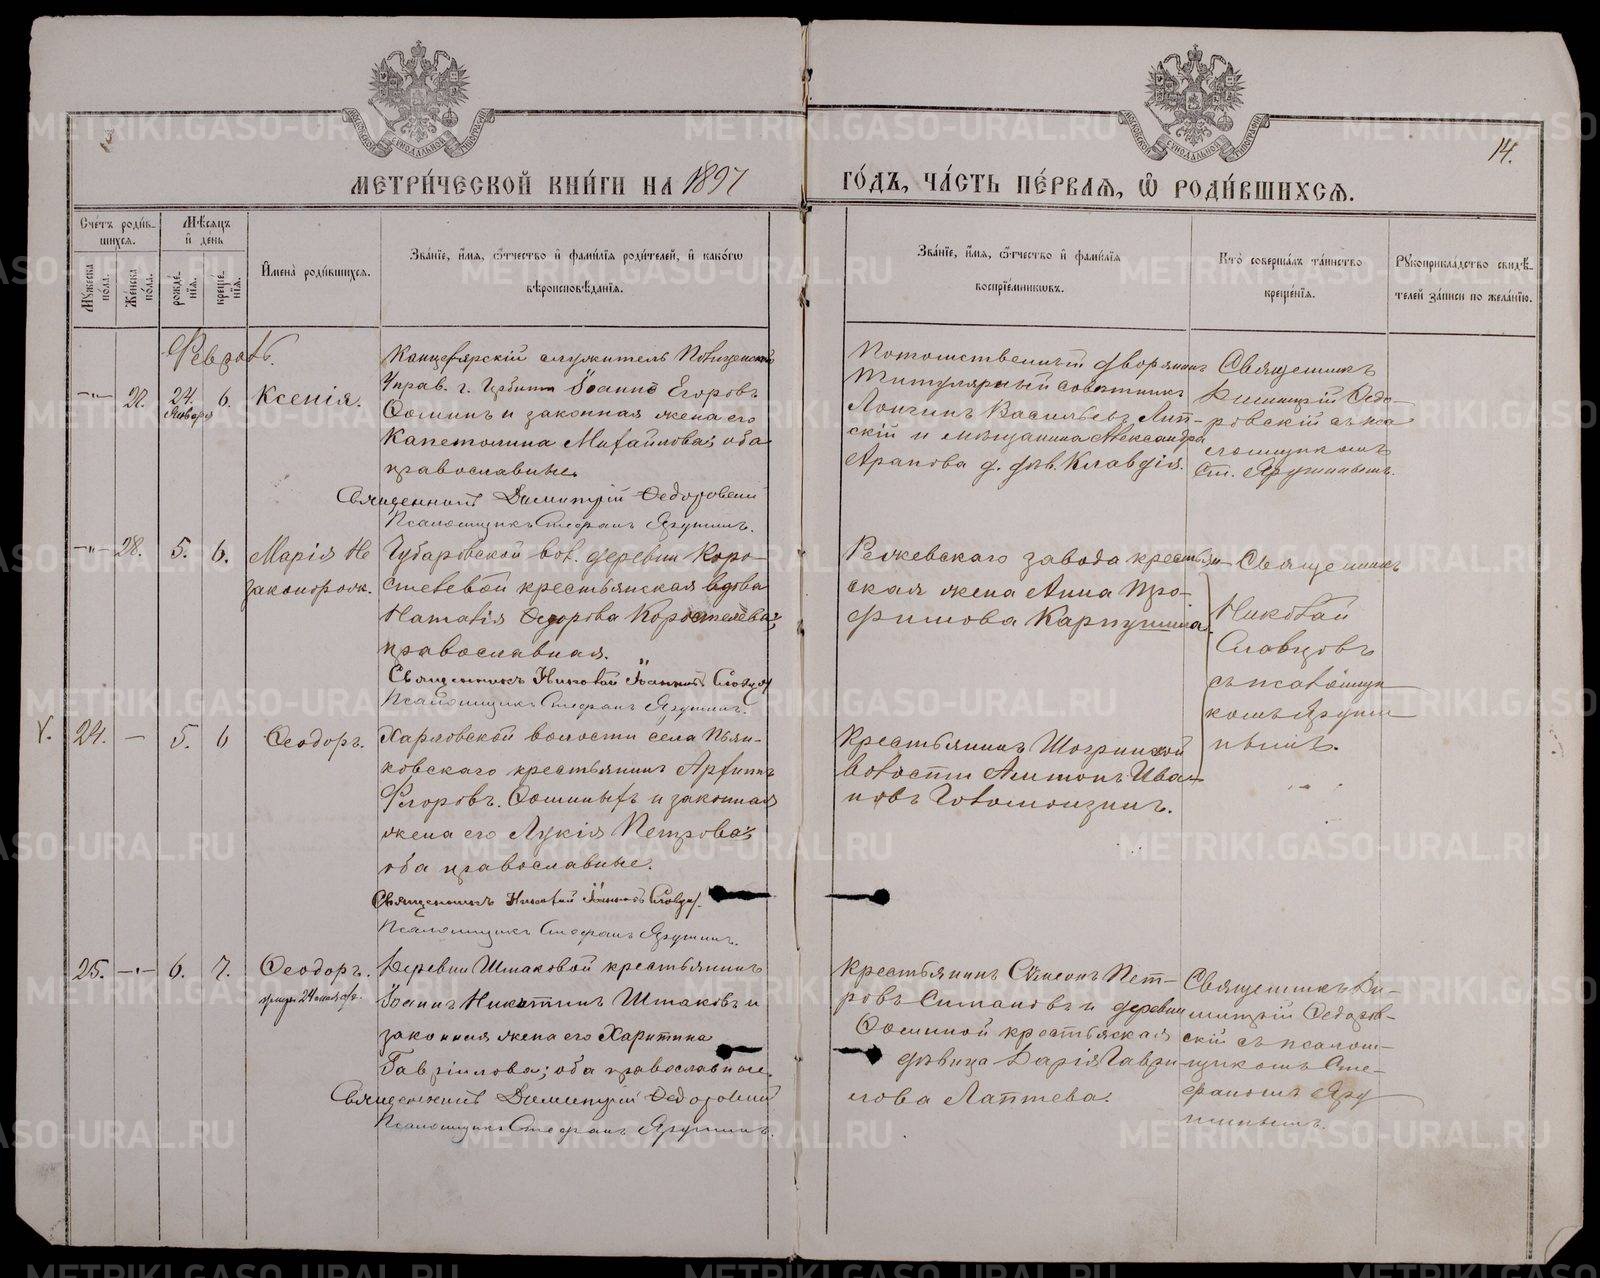 14.
МЕТРИ́ЧЕСКОЙ КНИ́ГИ НА 1897
ГО́ДЪ, ЧА́СТЬ ПЕ́РВАЯ, Ѡ РОДИ́ВШИХСЯ.
Сче́тъ роди́в-
шихся.
Мѣ́сяцъ
и҆ де́нь
Мꙋ́жеска
по́ла.
Же́нска
по́ла.
рожде́-
нїѧ.
креще́-
нїѧ.
И҆мена̀ роди́вшихся.
Зва́нїе, и҆́мя, ѻ҆́тчество и҆ фами́лїя роди́телей, и҆ како́гѡ
вѣроисповѣ́данїя.
Зва́нїе, и҆́мя, ѻ҆́тчество и҆ фами́лїя
воспрїе́мникѡвъ.
Кто̀ соверша́лъ та́инство
креще́нїя.
Рꙋкоприкла́дство свидѣ́-
телей за́писи по жела́нїю.
Февраль.
-"- 27. 24. Января 6. Ксенія.
Канцелярскій служитель Полицейск.
Управ. г. Ирбита Іоаннъ Егоровъ
Ѳоминъ и законная жена его
Капетолина Михайлова; оба
православные.
Священникъ Димитрій Ѳедоровскій
Псаломщикъ Стефанъ Ярушинъ.
Потомственный дворянинъ
Титулярный совѣтникъ
Лонгинъ Васильевъ Лит-
скій и мѣщанина Александра
Арапова д. дѣв. Клавдія.
Священникъ
Димитрій Ѳедо-
ровскій съ пса
ломщикомъ
Ст. Ярушинымъ.
-"- 28. 5. 6. Марія Не
законорож.
Чубаровской вол. деревни Коро-
стелевой крестьянская вдова
Наталія Ѳедорова Коростелева;
православная.
Священникъ Николай Іоанновъ Словцов
Псаломщикъ Стефанъ Ярушинъ.
Режевскаго завода крестьян-
ская жена Анна Тро-
фимова Карпушина.
Священникъ
Николай
Словцовъ
съ псаломщи
комъ Яруши
нымъ.
Х. 24. — 5. 6 Ѳеодоръ.
Харловской волости села Пьян-
ковскаго крестьянинъ Арѳимъ
Егоровъ Ѳоминыхъ и законная
жена его Лукія Петрова;
оба православные.
Священникъ Николай Іоанновъ Словцов.
Псаломщикъ Стефанъ Ярушинъ.
Крестьянинъ Шогринской
волости Антонъ Ива-
новъ Голомолзинъ.
25. -"- 6. 7. Ѳеодоръ.
Деревни Шмаковой крестьянинъ
Іоаннъ Никитинъ Шмаковъ и
законная жена его Харитина
Гавріилова; оба православные.
Священникъ Димитрій Ѳедоровскій
Псаломщикъ Стефанъ Ярушинъ.
Крестьянинъ Симеонъ Пет-
ровъ Симановъ и деревни
Ѳоминой крестьяская
дѣвица Дарія Гаври
лова Лаптева.
Священникъ Ди-
митрій Ѳедоров-
скій съ псалом-
щикомъ Сте-
фаномъ Яру
шинымъ.
METRIKI.GASO-URAL.RU